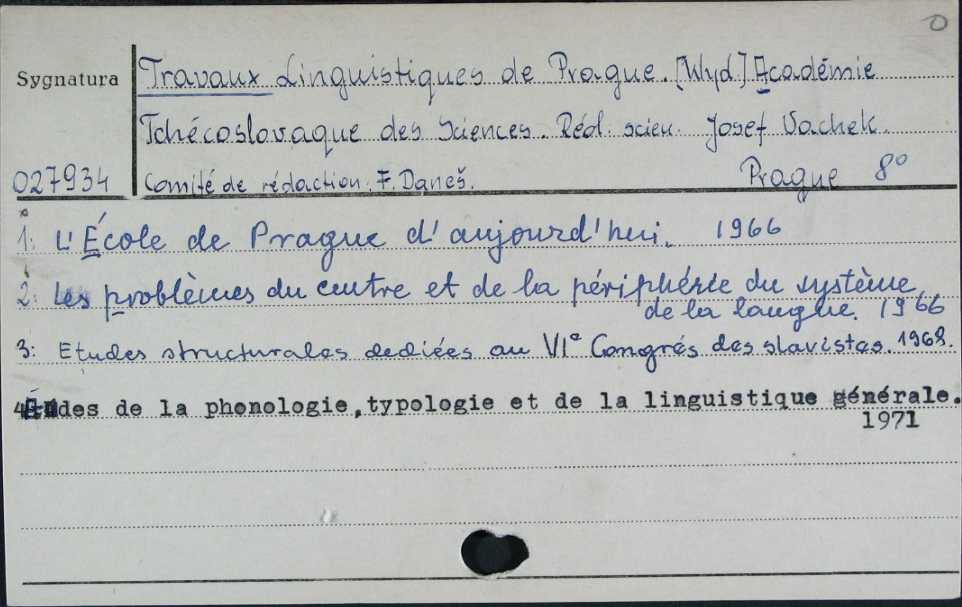 0
Sygnatura
Travaux Linguistiques de Prague. [Wyd.] Académie
Tchécoslovaque des Sciences. Réd. scien. Josef Vachek.
027934 Comité de rédaction: F. Daneš. Prague 8°
1. L'École de Prague d'aujourd'hui. 1966
2. Les problèmes du centre et de la périphérie du système
de la langue. 1966
3: Etudes structurales dediées au VIe Congrés des slavistes. 1968.
4. Etudes de la phonologie, typologie et de la linguistique générale.
1971